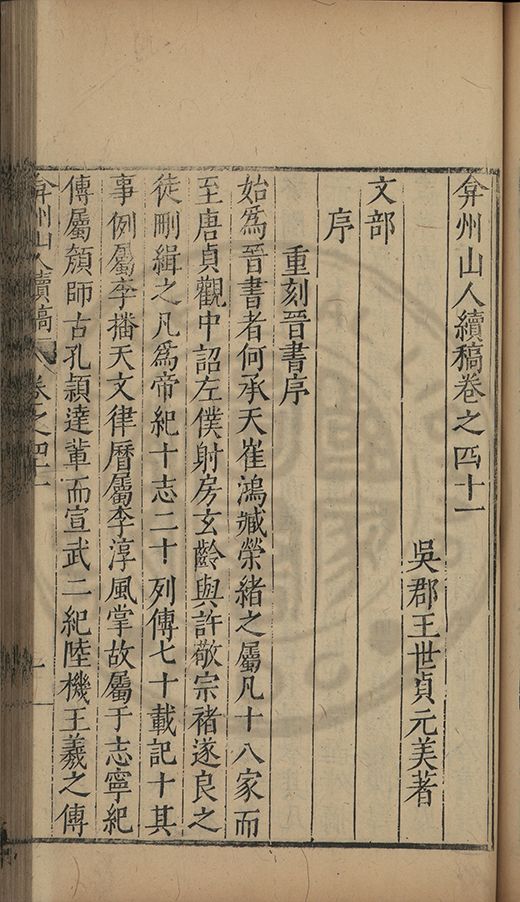 弇州山人續稿卷之四十一
吳郡王世貞元美著
文部
序
重刻晉書序
始爲晉書者何承天崔鴻臧榮緒之屬凡十八家而
至唐貞觀中詔左僕射房玄齡與許敬宗褚遂良之
徒刪緝之凡爲帝紀十志二十列傳七十載記十其
事例屬李播天文律曆屬李淳風掌故屬于志寧紀
傳屬顏師古孔穎達軰而宣武二紀陸機王羲之傳
弇州山人續稿 卷之四十一 一